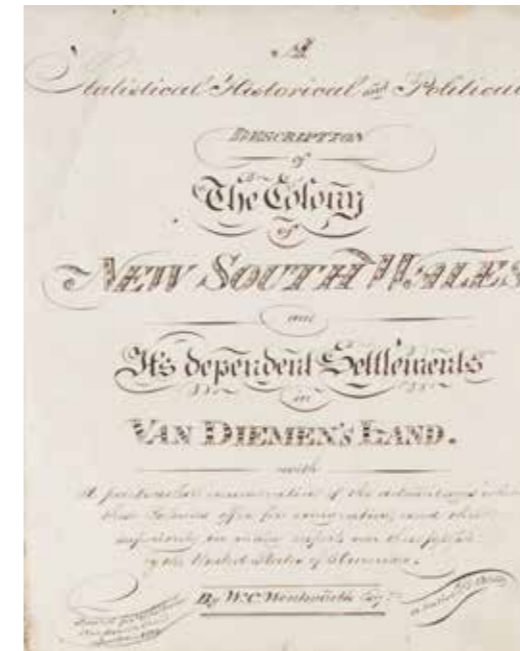 A
Statistical Historical and Political
DESCRIPTION
of
The Colony
of
NEW SOUTH WALES
and
It's dependent Settlements
in
VAN DIEMEN'S LAND.
with
A particular enumeration of the advantages which
these Colonies offer for emigration, and their
superiority in many respects over those possessed
by the United States of America.
By W. C. Wentworth Esq.